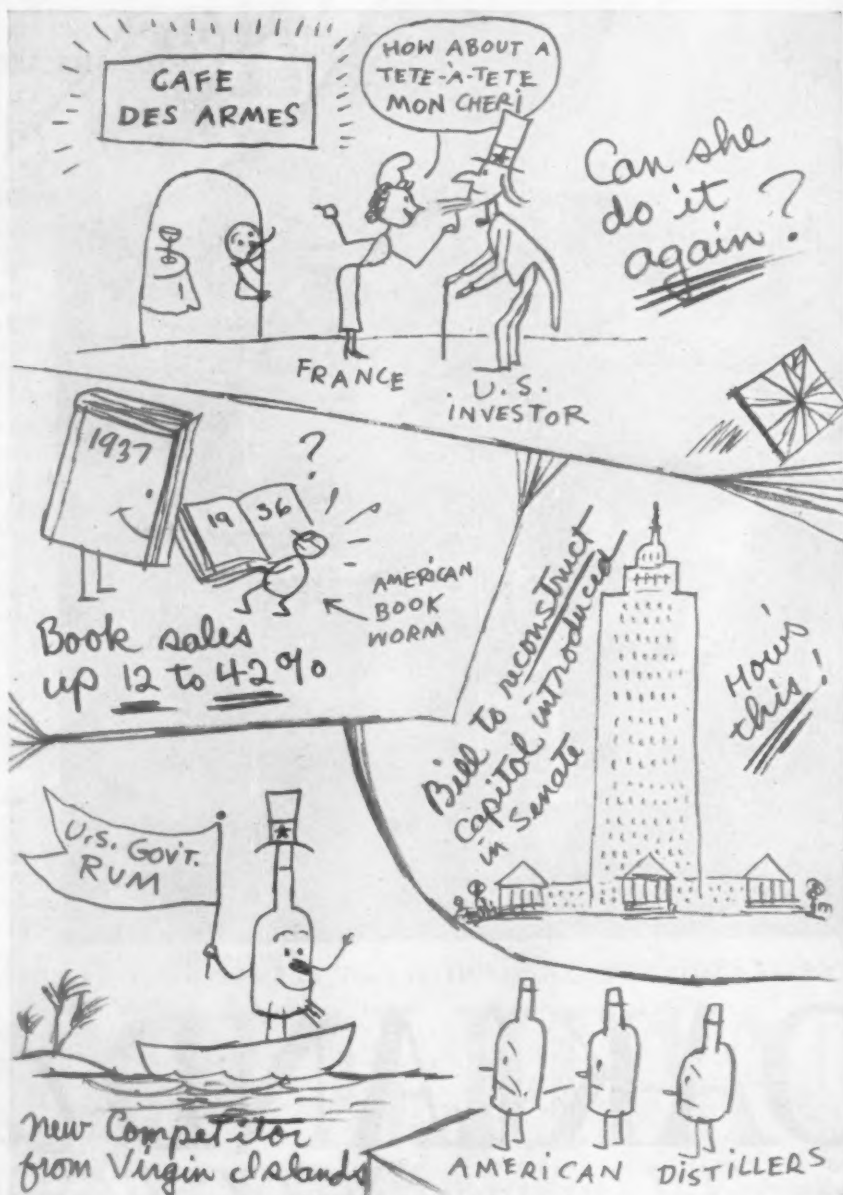 CAFE
DES ARMES
HOW ABOUT A
TETE-À-TETE
MON CHERI
Can she
do it
again?
FRANCE
U.S.
INVESTOR
1937
?
19 36
AMERICAN
BOOK
WORM
Book sales
up 12 to 42%
Bill to reconstruct
Capitol introduced
in Senate
How's
this!
U.S. GOV'T.
RUM
New Competitor
from Virgin Islands
AMERICAN DISTILLERS